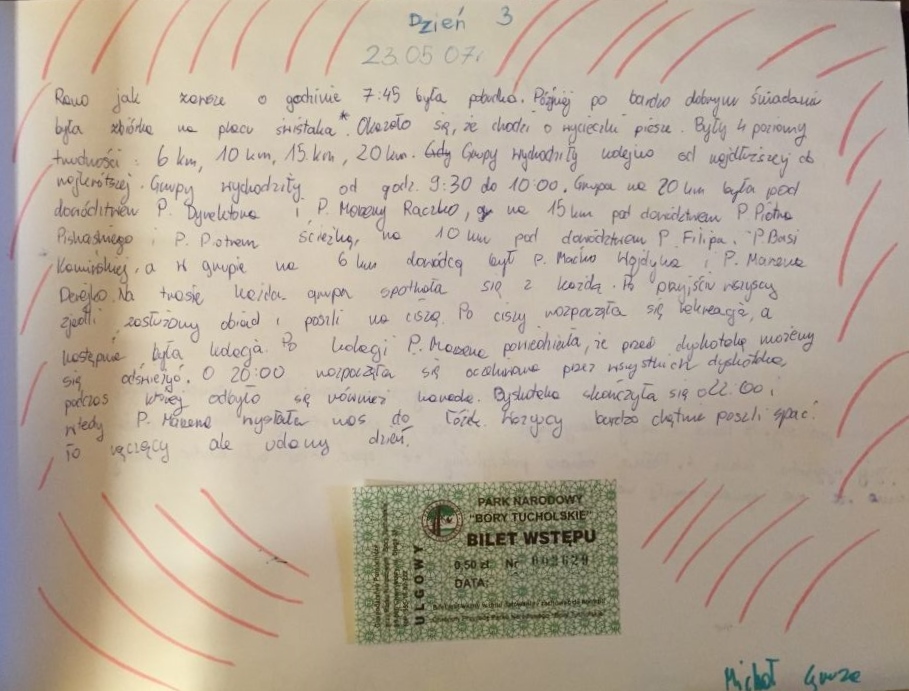 Dzień 3
23.05.07r
Rano jak zawsze o godzinie 7:45 była pobudka. Później po bardzo dobrym śniadaniu
była zbiórka na placu świstaka*. Okazało się, że chodzi o wycieczki piesze. Były 4 poziomy
trudności: 6 km, 10 km, 15 km, 20 km. Gdy Grupy wychodziły kolejno od najdłuższej do
najkrótszej. Grupy wychodziły od godz. 9:30 do 10:00. Grupa na 20 km była pod
dowództwem P. Dyrektora i P. Marzeny Raczko, na 15 km pod dowództwem P. Piotra
i P. Piotrem Ścieżką, na 10 km pod dowództwem P. Filipa. P Basi
Kamińskiej, a w grupie na 6 km dowódcą był P. Maćko Wojdyka i P. Marzena
Derejko. Na trasie każda grupa spotkała się z każdą. Po przyjściu wszyscy
zjedli zasłużony obiad i poszli na ciszę. Po ciszy rozpoczęła się rekreacja, a
następnie była kolacja. Po kolacji P. Marzena powiedziała, że przed dyskoteką możemy
się odświeżyć. O 20:00 rozpoczęła się oczekiwana przez wszystkich dyskoteka,
podczas której odbyło się również karaoke. Dyskoteka skończyła się o 22:00 i
wtedy P. Marzena wysłała nas do łóżek. Wszyscy bardzo chętnie poszli spać.
To męczący ale udany dzień.
PARK NARODOWY
"BORY TUCHOLSKIE"
BILET WSTĘPU
0,50 zł Nr 002629
DATA:
ULGOWY
Michał